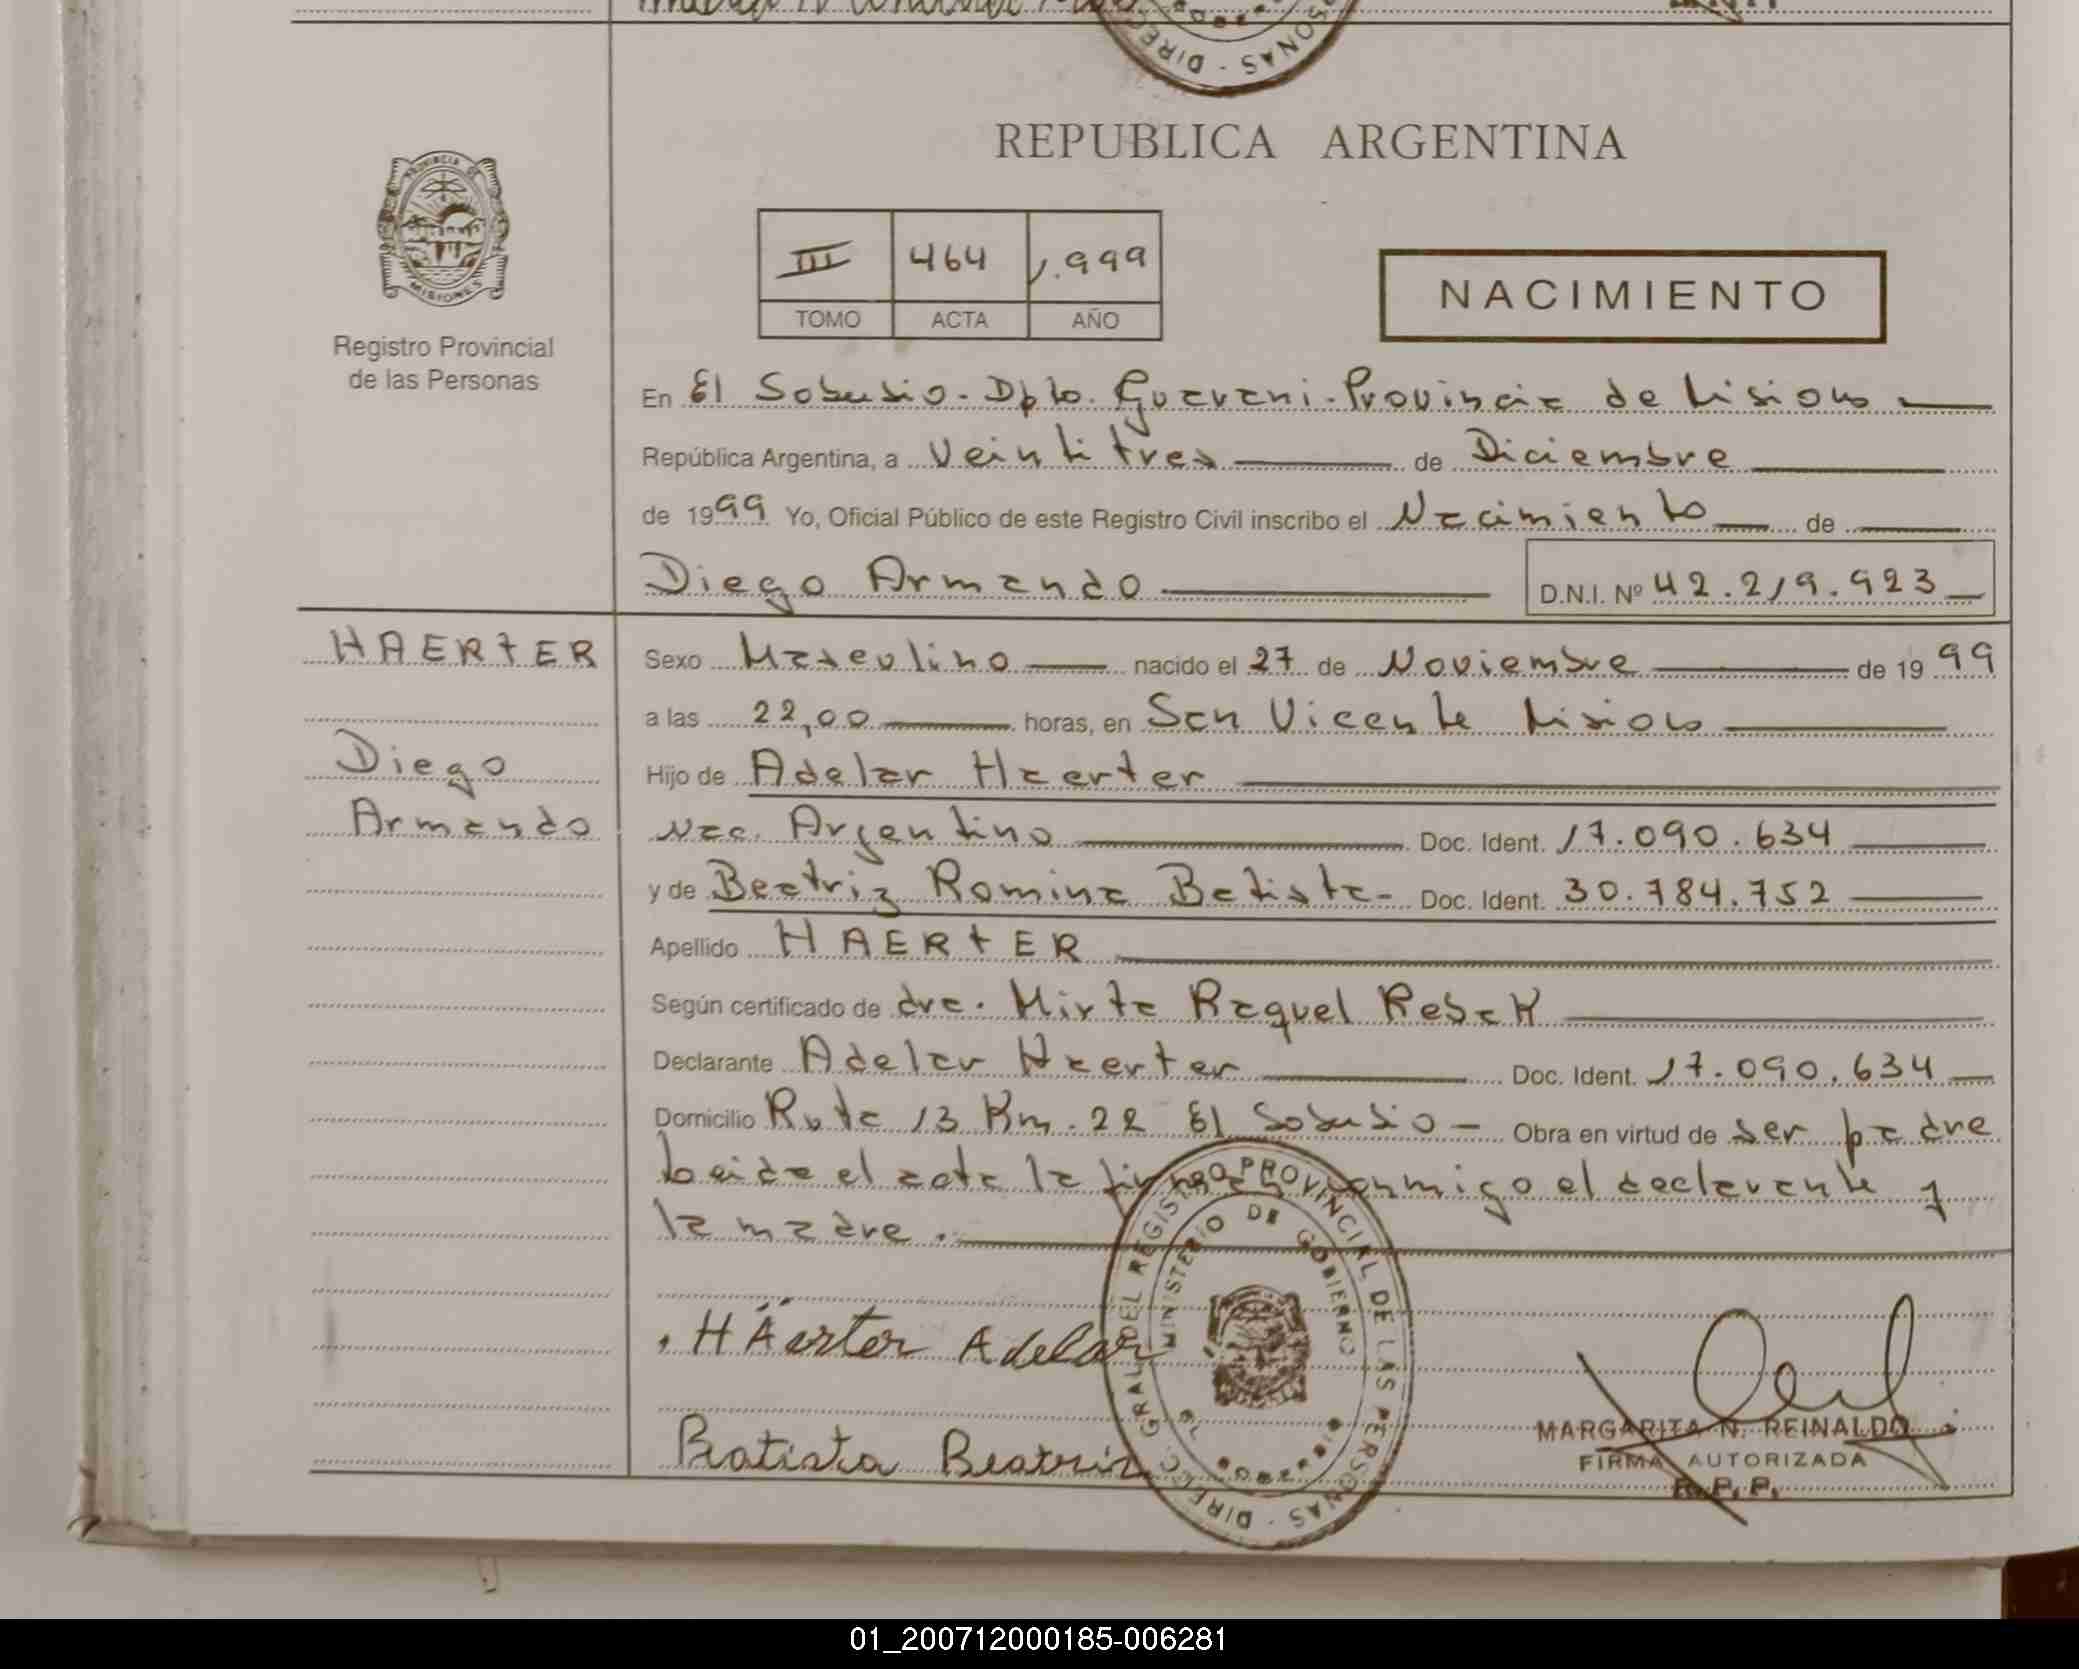 REPUBLICA ARGENTINA
PROVINCIA DE MISIONES
Registro Provincial
de las Personas
III 464 1.999
TOMO ACTA AÑO
NACIMIENTO
En El Soberbio - Dpto. Guarani - Provincia de Misiones
República Argentina, a Veintitres de Diciembre
de 1999 Yo, Oficial Público de este Registro Civil inscribo el Nacimiento de
Diego Armando D.N.I. Nº 42.219.923
HAERTER
Diego
Armando
Sexo Masculino nacido el 27 de Noviembre de 1999
a las 22,00 horas, en San Vicente Misiones
Hijo de Adelar Haerter
Nac. Argentino Doc. Ident. 17.090.634
y de Beatriz Romina Batista - Doc. Ident. 30.784.752
Apellido HAERTER
Según certificado de dra. Mirta Raquel Rebak
Declarante Adelar Haerter Doc. Ident. 17.090.634
Domicilio Ruta 13 Km. 22 El Soberbio - Obra en virtud de ser padre
Leida el acta la firman conmigo el declarante y
la madre.
HÄerter Adelar
Batista Beatriz
DIRECC. GRAL. DEL REGISTRO PROVINCIAL DE LAS PERSONAS
MINISTERIO DE GOBIERNO
MARGARITA N. REINALDO
FIRMA AUTORIZADA
R.P.P.
01_200712000185-006281